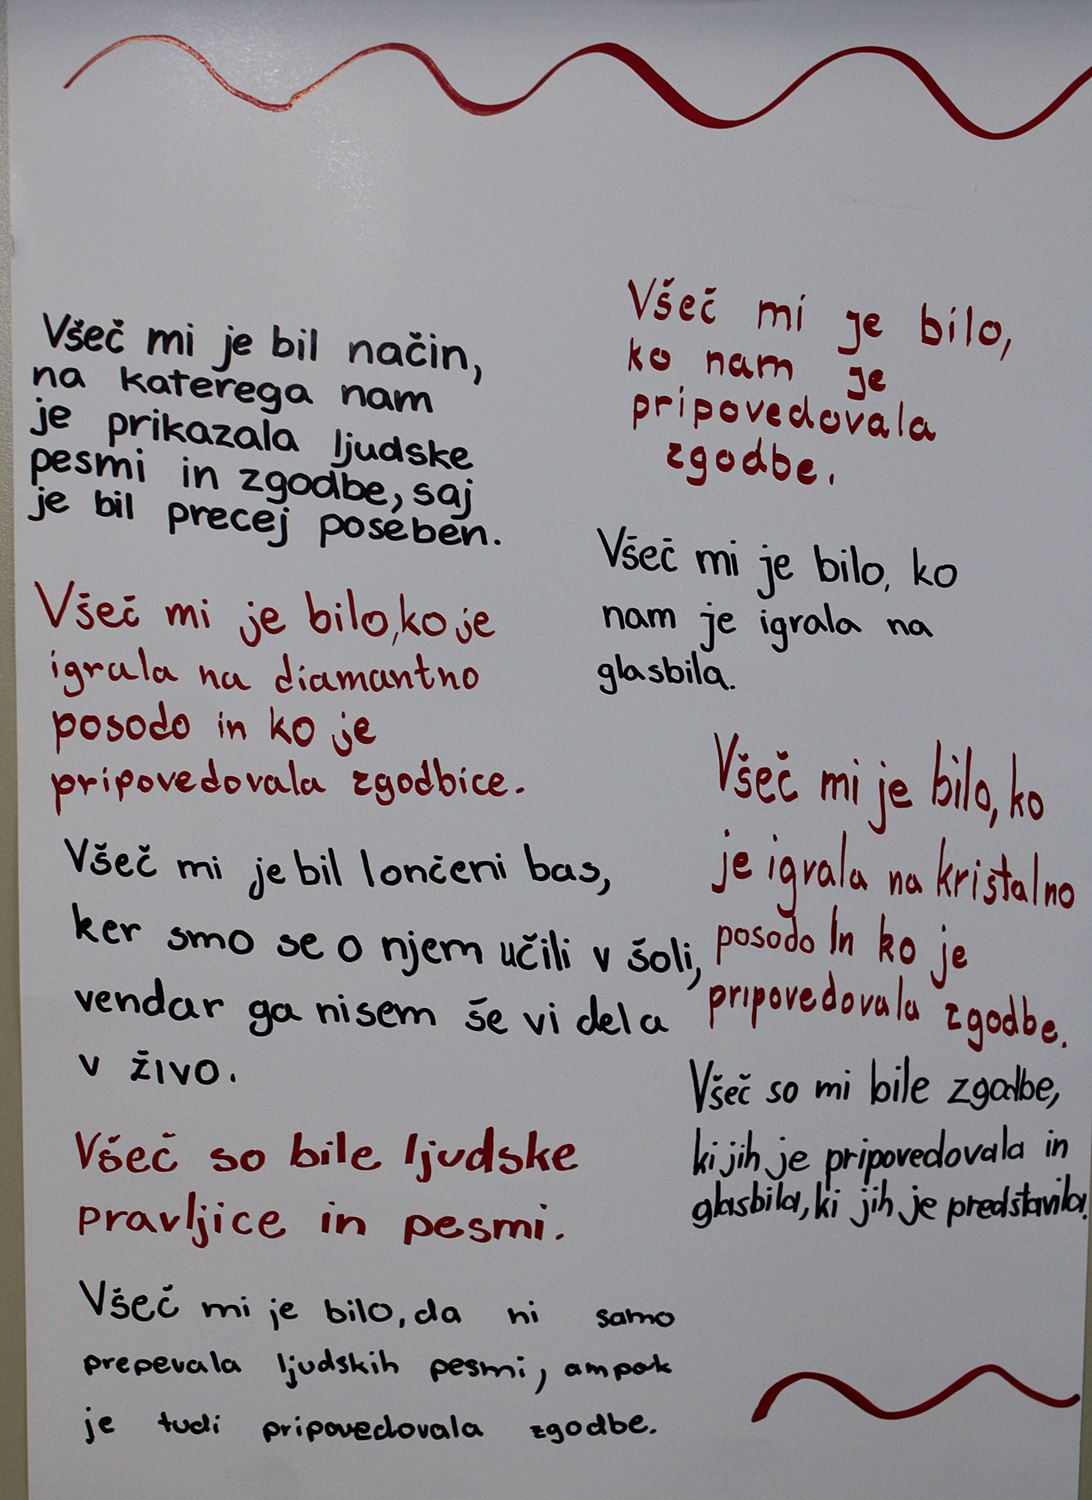 Všeč mi je bil način,
na katerega nam
je prikazala ljudske
pesmi in zgodbe, saj
je bil precej poseben.
Všeč mi je bilo, ko je
igrala na diamantno
posodo in ko je
pripovedovala zgodbice.
Všeč mi je bil lončeni bas,
ker smo se o njem učili v šoli,
vendar ga nisem še videla
v živo.
Všeč so bile ljudske
pravljice in pesmi.
Všeč mi je bilo, da ni samo
prepevala ljudskih pesmi, ampak
je tudi pripovedovala zgodbe.
Všeč mi je bilo,
ko nam je
pripovedovala
zgodbe.
Všeč mi je bilo, ko
nam je igrala na
glasbila.
Všeč mi je bilo, ko
je igrala na kristalno
posodo in ko je
pripovedovala zgodbe.
Všeč so mi bile zgodbe,
ki jih je pripovedovala in
glasbila, ki jih je predstavila.